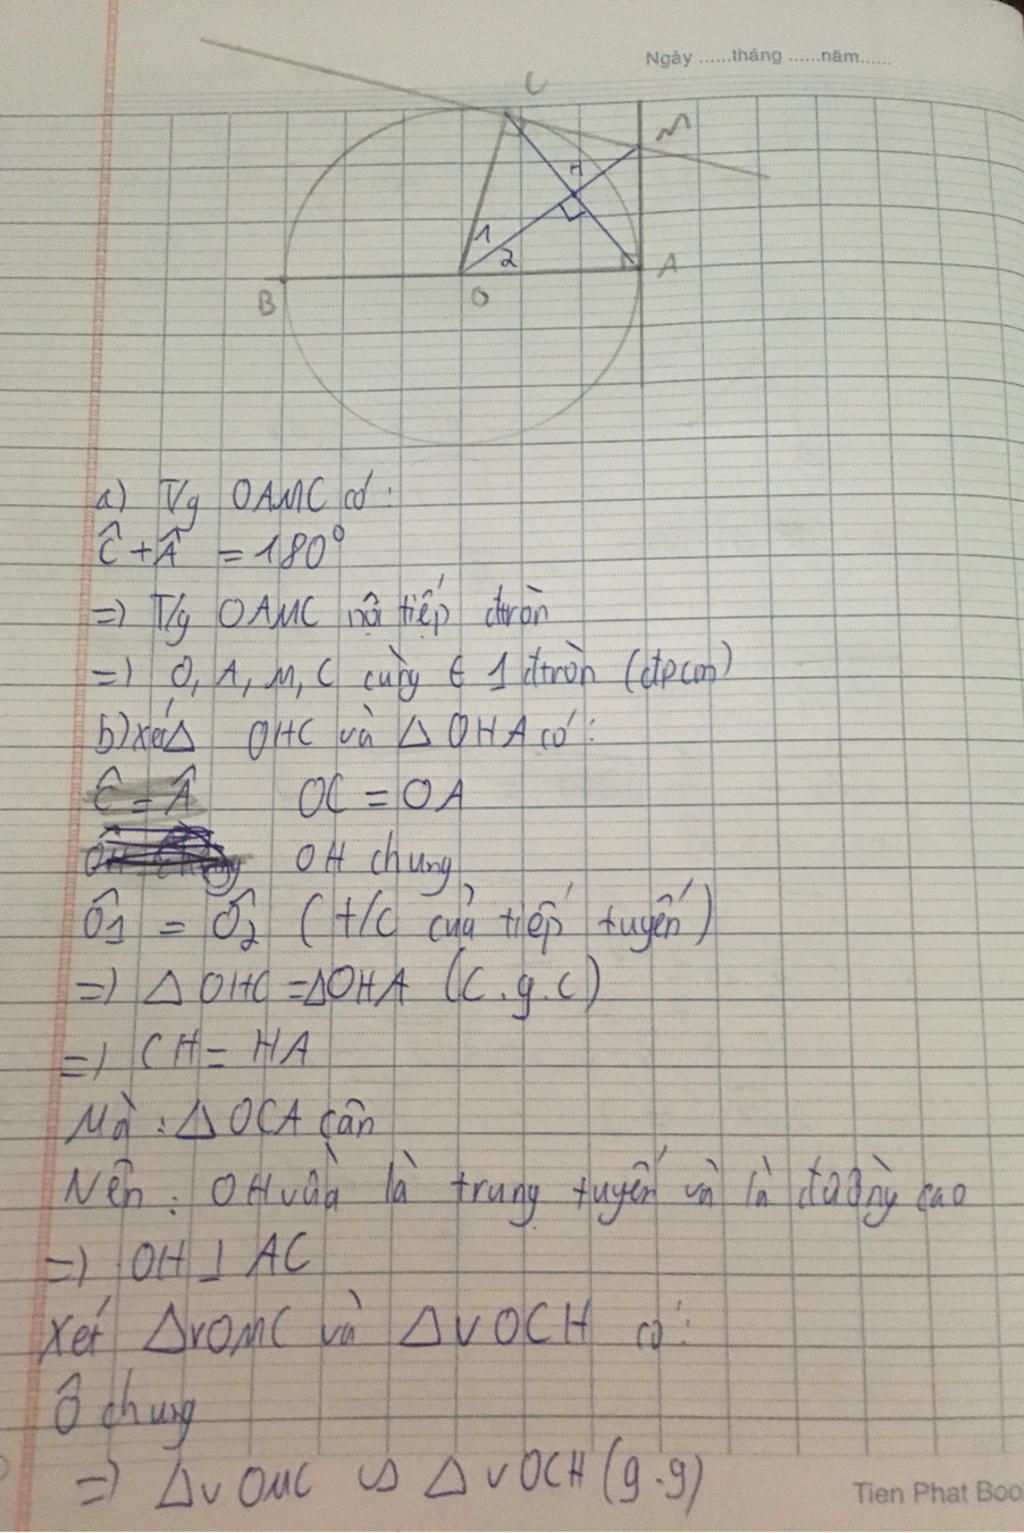 Ngày ......tháng ......năm......
C
M
H
1
2
A
B
O
a) Tg OAMC có:
Ĉ + Â = 180°
=) T/g OAMC nội tiếp đtròn
=) O, A, M, C cùng ∈ 1 đtròn (đpcm)
b) Xét Δ OHC và Δ OHA có:
Ĉ = Â OC = OA
OH chung OH chung
Ô1 = Ô2 (t/c của tiếp tuyến)
=) Δ OHC = Δ OHA (c.g.c)
=) CH = HA
Mà: Δ OCA cân
Nên: OH vừa là trung tuyến và là đường cao
=) OH ⊥ AC
Xét ΔvOMC và ΔvOCH có:
Ô chung
=) ΔvOMC ∽ ΔvOCH (g.g)
Tien Phat Boo